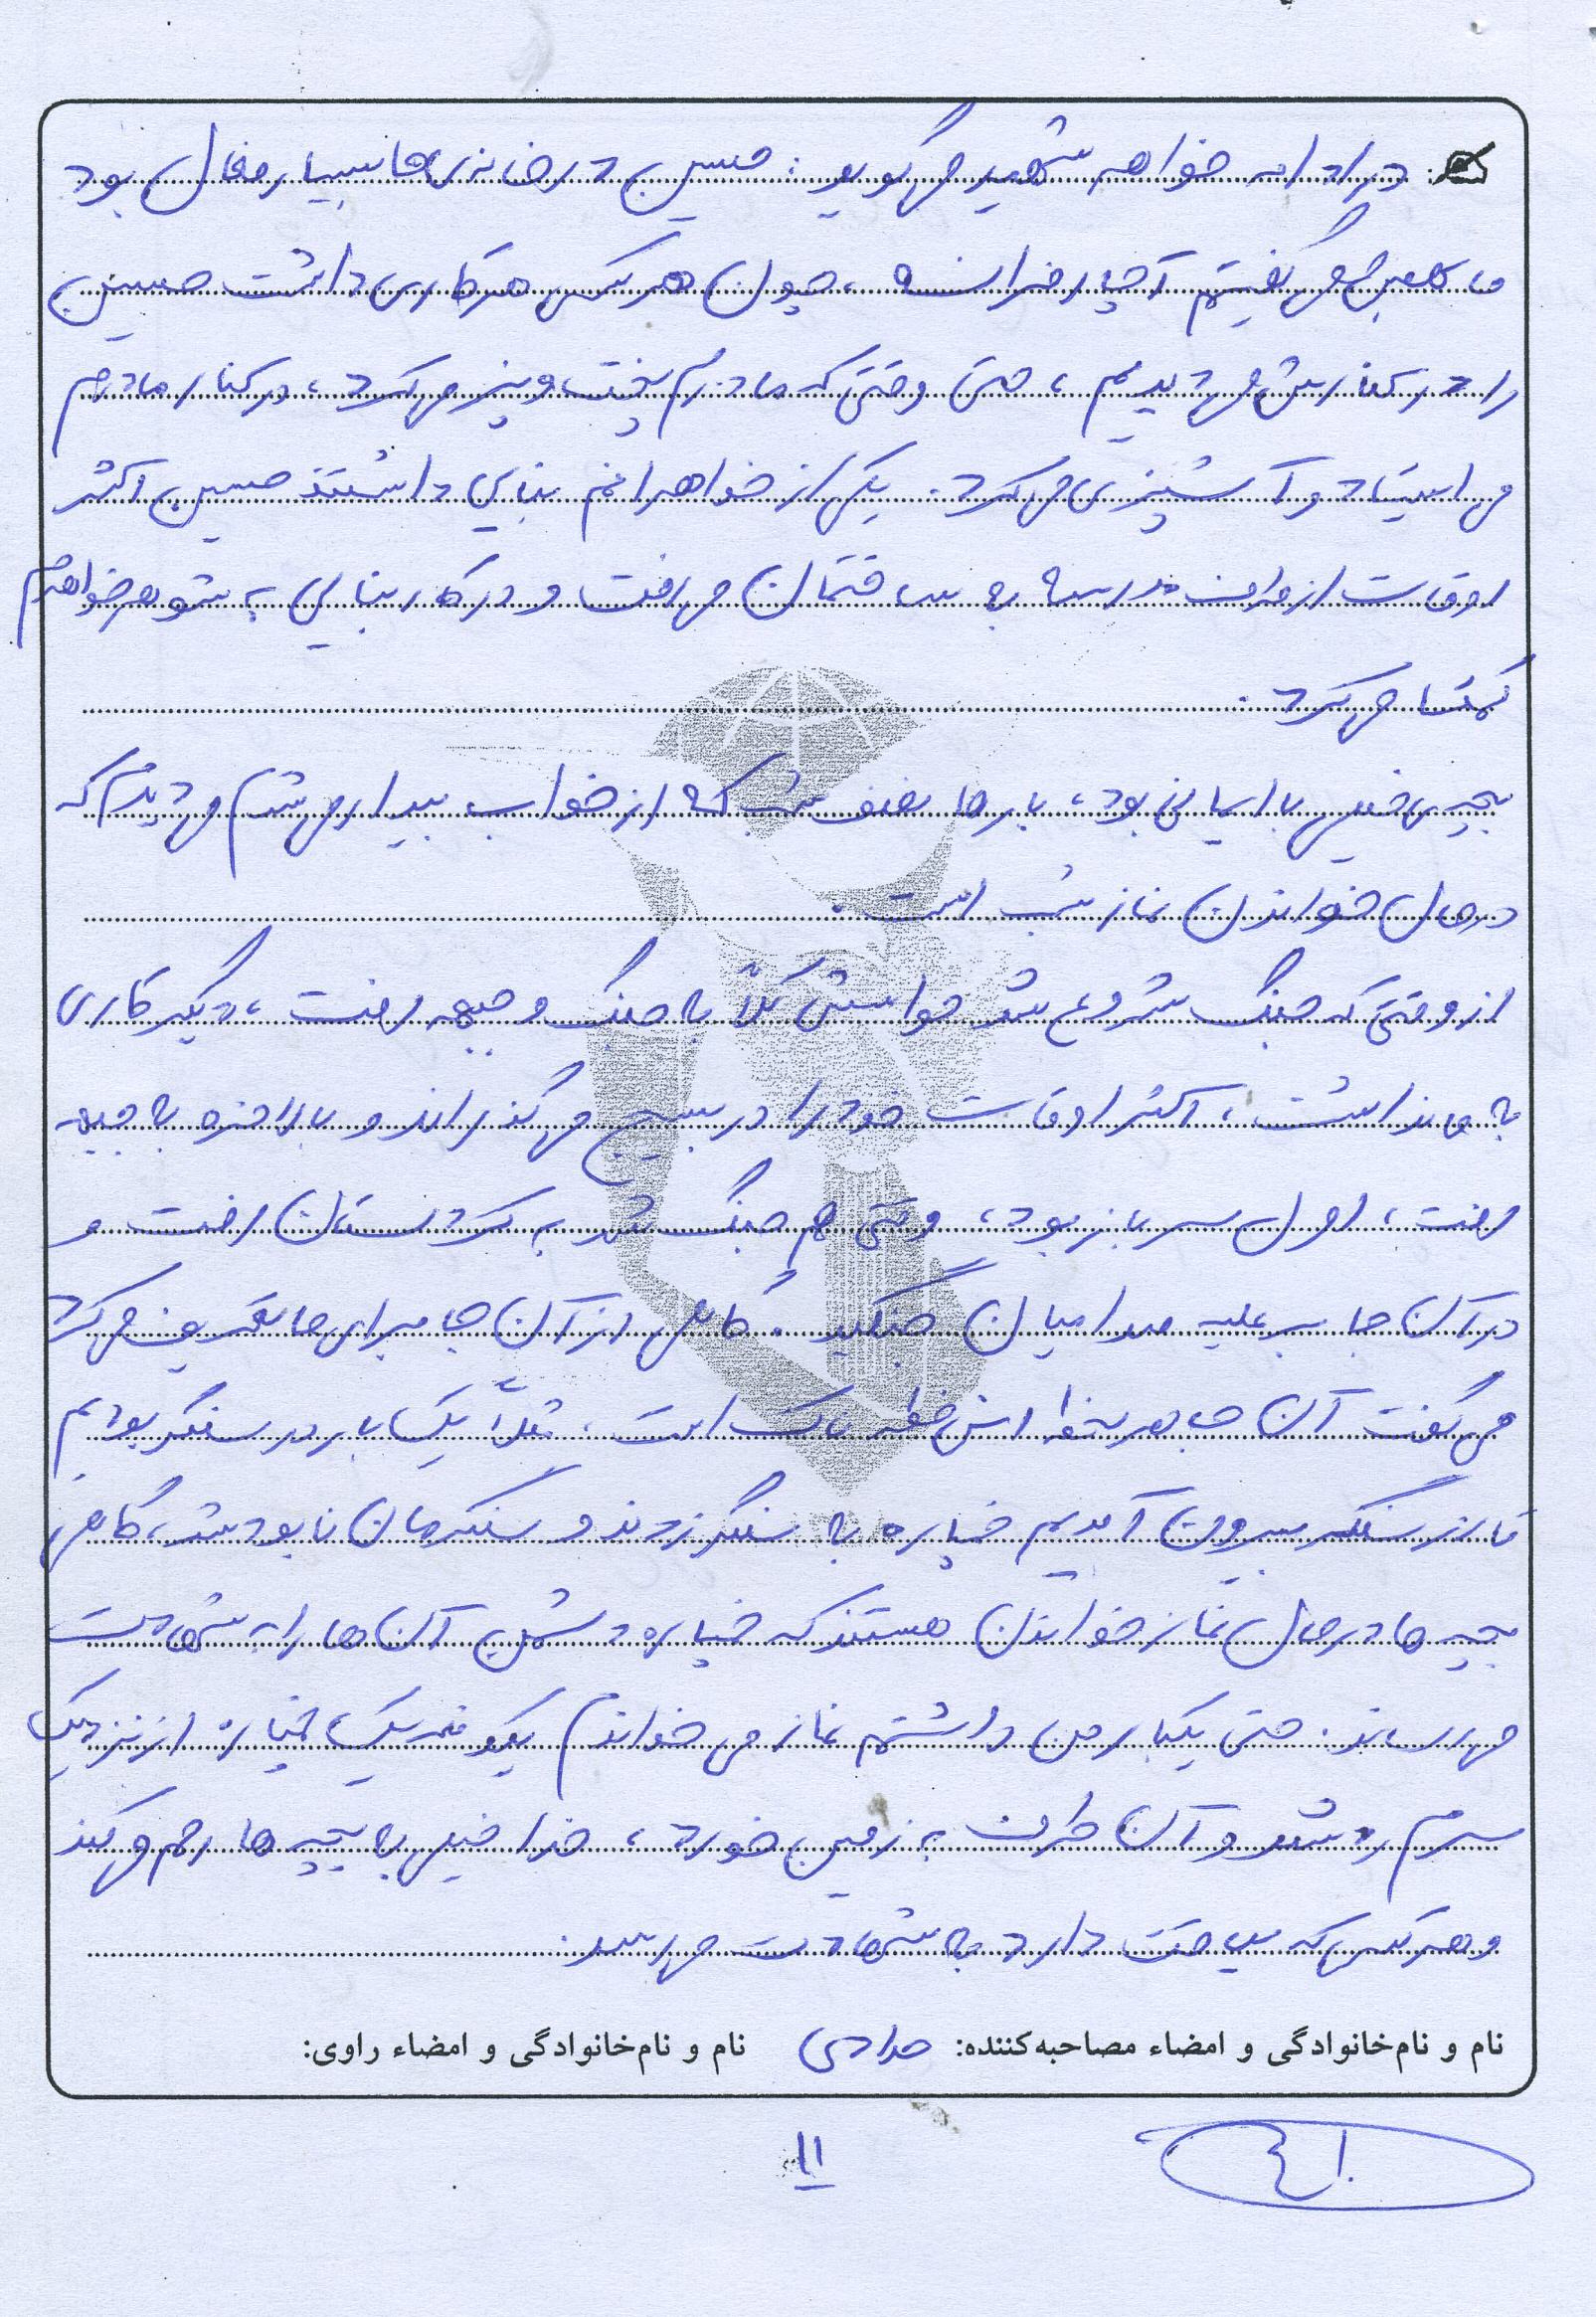 در ادامه خواهر شهید می گوید: حسین در خانه ی ما بسیار فعال بود
ما همین می گفتیم آچار فرانسه، چون هر کس هر کاری داشت حسین
را در کنارش می دیدیم، حتی وقتی که مادرم پخت و پز می کرد، در کنار مادرم
می ایستاد و آشپزی می کرد. یکی از خواهرانم بنایی داشتند حسین اکثر
اوقات از مدرسه به ساختمان می رفت و در کار بنایی به شوهر خواهرم
کمک می کرد.
بچه ی خیلی با ایمانی بود، بارها نصف شب که از خواب بیدار می شدم می دیدم که
در حال خواندن نماز شب است.
از وقتی که جنگ شروع شد حواسش کلاً به جنگ و جبهه رفت، دیگر کاری
به ما نداشت، اکثر اوقات خود را در بسیج می گذراند و بالاخره به جبهه
رفت، اول سرباز بود، وقتی هم جنگ شد به کردستان رفت و
در آن جا بر علیه صدامیان جنگید. گاهی از آن جا برای ما تعریف می کرد
می گفت آن جا هر لحظه اش خطرناک است، مثلاً یک بار در سنگر بودیم
تا از سنگر بیرون آمدیم خمپاره به سنگر زدند و سنگرمان نابود شد، گاهی
بچه ها در حال نماز خواندن هستند که خمپاره دشمن آن ها را به شهادت
می رساند. حتی یکبار من داشتم نماز می خواندم یکدفعه یک خمپاره از نزدیک
سرم رد شد و آن طرف به زمین خورد، خدا خیلی به بچه ها رحم می کند
و هر کس که لیاقت دارد به شهادت می رسد.
نام و نام‌خانوادگی و امضاء مصاحبه‌کننده: مرادی نام و نام‌خانوادگی و امضاء راوی:
۱۱